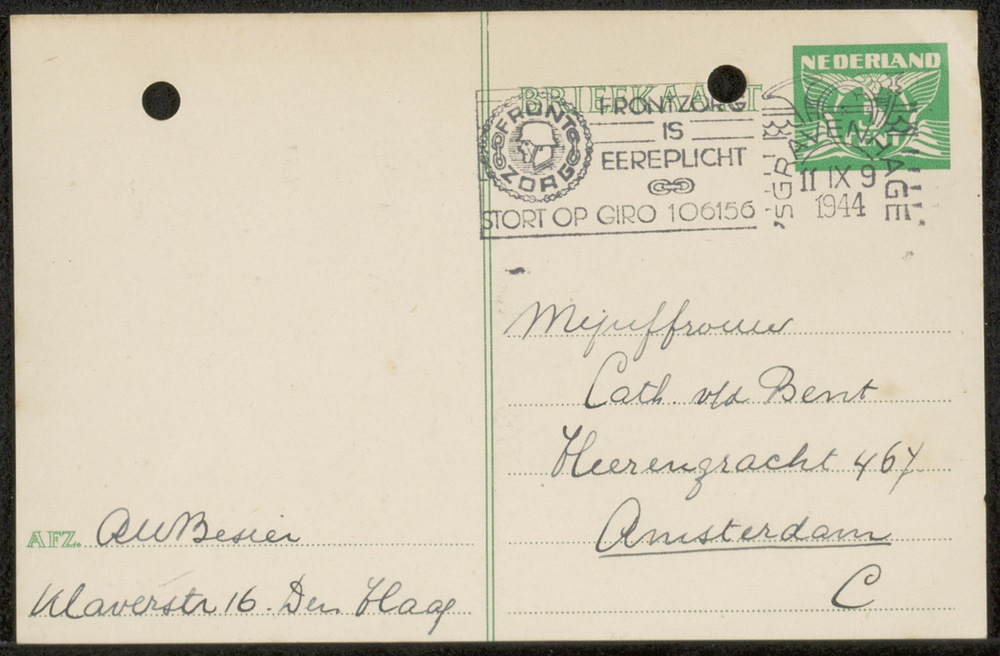 NEDERLAND
BRIEFKAART
FRONTZORG
IS
EEREPLICHT
STORT OP GIRO 106156
FRONT
ZORG
'SGRAVENHAGE
11 IX 9
1944
CENT
Mejuffrouw
Cath. v/d Bent
Heerengracht 467
Amsterdam
C
AFZ. AWBesier
Klaverstr 16. Den Haag